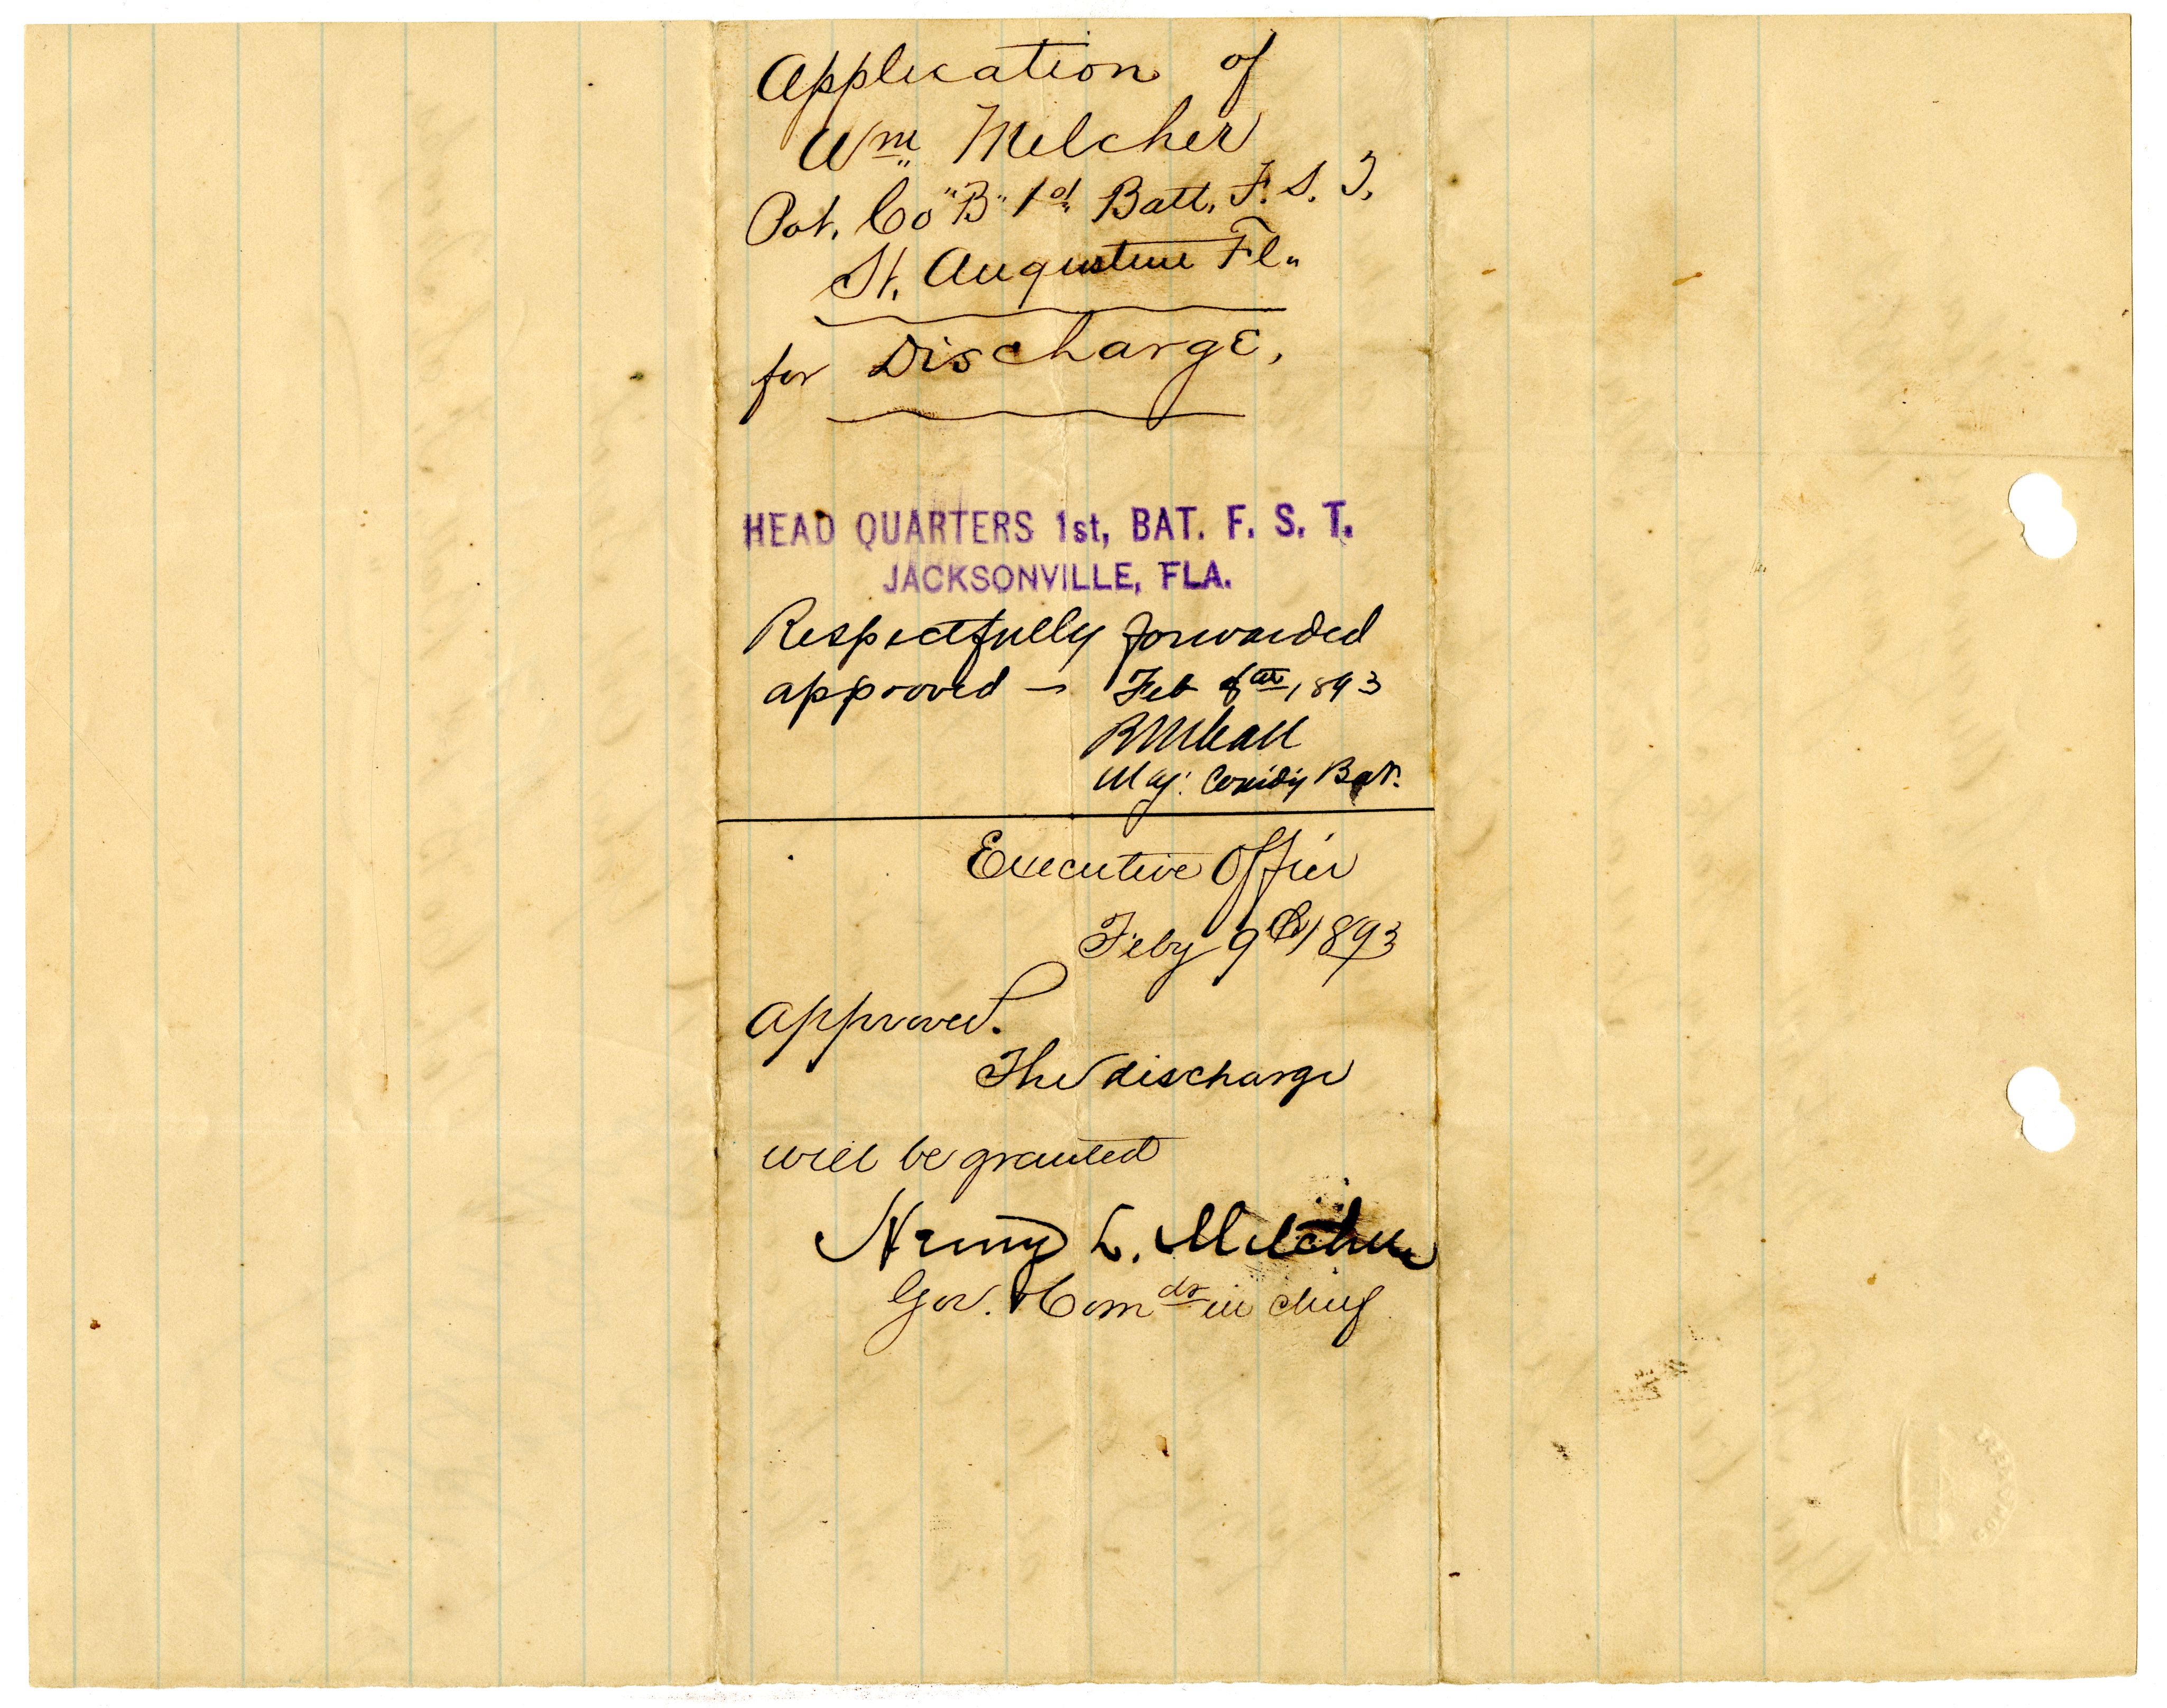 Application of
Wm. Melcher
Pvt. Co "B" 1st Batt. F. S. T.
St. Augustine Fla
for Discharge,
HEAD QUARTERS 1st, BAT. F. S. T.
JACKSONVILLE, FLA.
Respectfully forwarded
approved — Feb 1893
Maj: Comdg Bat.
Executive Office
Feby 9th 1893
Approved.
The discharge
will be granted
Henry L. Mitchell
Gov. & Comdr in chief